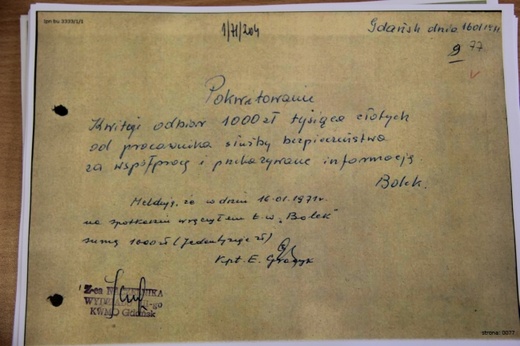 1/71/204
Gdańsk dnia 16 01 1971
9 77
Pokwitowanie
Kwituję odbiór 1000 zł tysiąca złotych
od pracownika służby bezpieczeństwa
za współpracę i przekazywane informacją
Bolek.
Melduję, że w dniu 16.01.1971r.
na spotkaniu wręczyłem t.w. „Bolek"
sumę 1000 zł (jedentysiąc zł)
Kpt. E. Graczyk
Z-ca NACZELNIKA
KWMO Gdańsk
strona: 0077